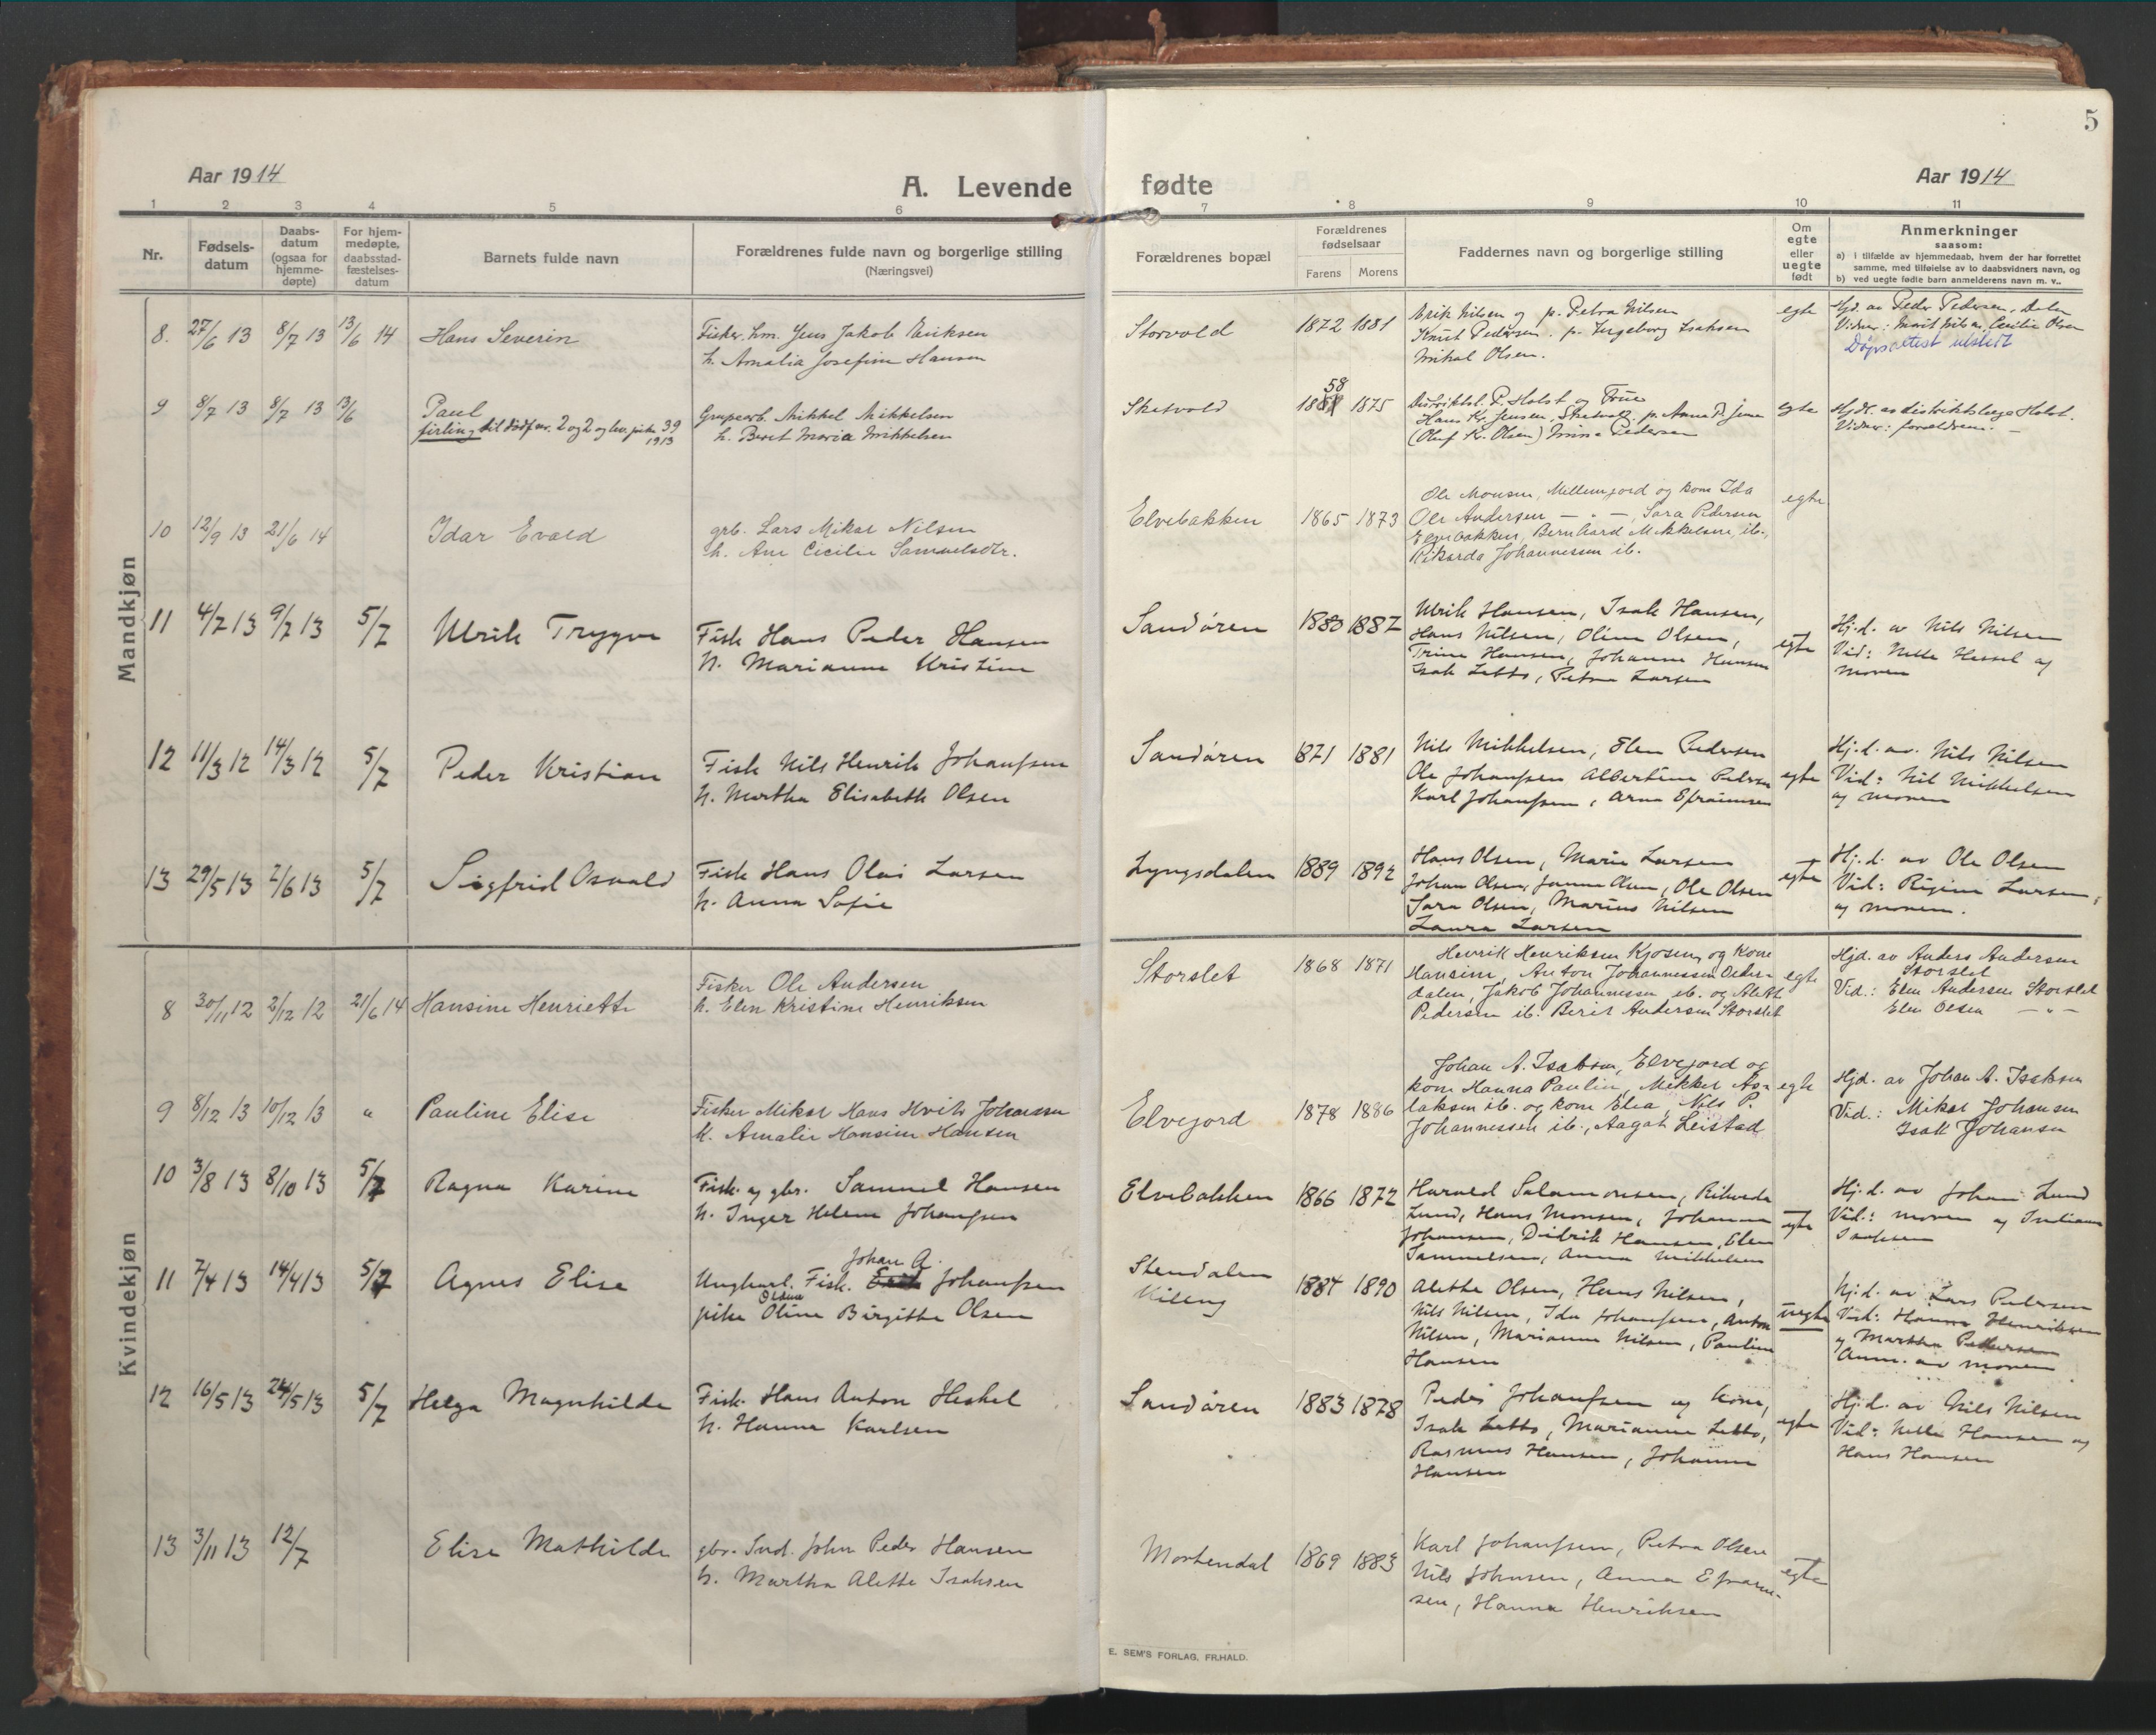 5
Aar 1914
A. Levende fødte
Aar 1914
1 2 3 4 5 6 7 8 9 10 11
Nr.
Fødsels-
datum
Daabs-
datum
(ogsaa for
hjemme-
døpte)
For hjem-
medøpte,
daabsstad-
fæstelses-
datum
Barnets fulde navn
Forældrenes fulde navn og borgerlige stilling
(Næringsvei)
Forældrenes bopæl
Forældrenes
fødselsaar
Farens Morens
Faddernes navn og borgerlige stilling
Om
egte
eller
uegte
født
Anmerkninger
saasom:
a) i tilfælde av hjemmedaab, hvem der har forrettet
samme, med tilføielse av to daabsvidners navn, og
b) ved uegte fødte barn anmelderens navn m. v..
Mandkjøn
8. 27/6 13 8/7 13 13/6 14 Hans Severin
Fisker, hm. Jens Jakob Eriksen
h. Amalia Josefine Hansen
Storvold 1872 1881
Erik Nilsen og p. Petra Nilsen
Knut Pedersen. p. Ingeborg Isaksen
Mikal Olsen.
egte
Hjd. av Peder Pedersen, Dalen
Vidner: Marit Nilsen, Cecilie Olsen
Døpsattest utstedt
9 8/7 13 8/7 13 13/6 Paul
til dødf nr. 2 og 2 og lev. pike 39
1913
Grupearb. Mikkel Mikkelsen
h. Beret Maria Mikkelsen
Skatvold 58 1875
Distriktsl. P. Holst og Frue
Hans Kr. Jensen, p. Anna P. Jensen
(Oluf K. Olsen) Pedersen
egte
Hjdt. av distriktslæge Holst.
Vidner: forældrene. —
10 12/9 13 21/6 14 Idar Evald
grb. Lars Mikal Nilsen
h. Ane Cicilie Samuelsdtr.
Elvebakken 1865 1873
Ole Monsen, Mellemjord og kone Ida
Ole Andersen — " —, Sara Pedersen
Elvebakken, Bernhard Mikkelsen, ib.,
Rikarda Johannessen ib.
egte
11 4/7 13 9/7 13 5/7 Ulrik Trygve
Fisk Hans Peder Hansen
h. Marianne Kristine
Sandøren 1880 1887
Ulrik Hansen, Isak Hansen,
Hans Nilsen, Oline Olsen,
Trine Hansen, Johanne Hansen
Isak Letto, Petra Larsen
egte
Hj.d. av Nils Nilsen
Vid: Nille Heskel og
moren
12 11/3 12 14/3 12 5/7 Peder Kristian
Fisk Nils Henrik Johanssen
h. Martha Elisabeth Olsen
Sandøren 1871 1881
Nils Mikkelsen, Elen Pedersen
Ole Johanssen Albertine Pedersen
Karl Johanssen, Arne Efraimsen
egte
Hj.d. av. Nils Nilsen
Vid: Nil Mikkelsen
og moren
13 29/5 13 2/6 13 5/7 Sigfrid Osvald
Fisk Hans Olai Larsen
h. Anna Sofie
Lyngsdalen 1889 1892
Hans Olsen, Marie Larsen
Johan Olsen, Olsen, Ole Olsen
Sara Olsen, Marius Nilsen
Laura Larsen
egte
Hj.d. av Ole Olsen
Vid: Larsen,
og moren.
Kvindekjøn
8 30/11 12 2/12 12 21/6 14 Hansine Henriette
Fisker Ole Andersen
h. Elen Kristine Henriksen
Storslet 1868 1871
Henrik Henriksen Kjosen, og Kone
Hansine, Anton Johannessen Oder-
dalen, Jakob Johannessen ib. og Alett
Pedersen ib. Berit Andersen Storslet
egte
Hjd. av Anders Andersen
Storslet
Vid.: Elen Andersen Storslet
Elen Olsen — " —
9 8/12 13 10/12 13 " Pauline Elise
Fisker Mikal Hans Hvith Johansen
h. Amalie Hansine Hansen
Elvejord 1878 1886
Johan A. Isaksen, Elvejord og
kone Hanna Paulin, Mikkel As-
laksen ib. og kone Elea, Nils P.
Johannessen ib., Aagat Leistad
egte
Hjd. av Johan A. Isaksen
Vid.: Mikal Johansen
Isak Johansen
10 3/8 13 8/10 13 5/7 Ragna Karine
Fisk. og gbr. Samuel Hansen
h. Inger Helene Johanssen
Elvebakken 1866 1872
Harald Salamonsen, Rikarda
Lund, Hans Monsen, Johanna
Johansen, Didrik Hansen, Elen
Sammelsen, Anna Mikkelsen
egte
Hj.d. av Johan Lund
Vid.: moren og
Isaksen
11 7/4 13 14/4 13 5/7 Agnes Elise
Johan A.
Ungkarl. Fisk. Erik Johanssen
pike Oline Birgitte Olsen
Stendalen
1884 1890
Alette Olsen, Hans Nilsen,
Nils Nilsen, Ida Johanssen, Anton
Nilsen, Marianne Nilsen, Pauline
Hansen
uegte
Hj.d. av Lars Pedersen
Vid: Hanna Henriksen
og Martha Pedersen
Anm. av moren
12 16/5 13 24/5 13 5/7 Helga Magnhilde
Fisk. Hans Anton Heskel
h. Hanna Karlsen
Sandøren 1883 1878
Peder Johanssen og kone,
Isak Letto, Marianne Letto,
Rasmus Hansen, Johanne
Hansen
egte
Hj.d. av Nils Nilsen
Vid: Nille Hansen og
Hans Hansen
13 3/11 13 12/7 Elise Mathilde
gbr. Ind. John Peder Hansen
h. Martha Alette Isaksen
Mortendal 1869 1883
Karl Johanssen, Petra Olsen
Nils Johnsen, Anna Efraim-
sen, Hanna Henriksen
egte
E. SEM'S FORLAG, FR.HALD.